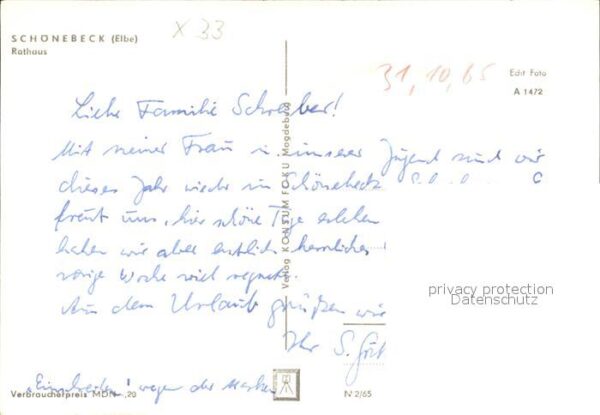 SCHÖNEBECK (Elbe)
Rathaus
X 33
31.10.65
Edit Foto
A 1472
Liebe Familie Schreiber!
Mit meiner Frau u. unserer Jugend sind wir
dieses Jahr wieder in Schönebeck
freut uns, hier schöne Tage erleben
haben wir aber endlich herrliches
vorige Woche viel regnete.
Aus dem Urlaub grüßen wir
Ihr S.
Verlag KONSUM FOKU Magdeburg
privacy protection
Datenschutz
"Einschreiben" wegen der Marken
Verbraucherpreis MDN -,20
N 2/65